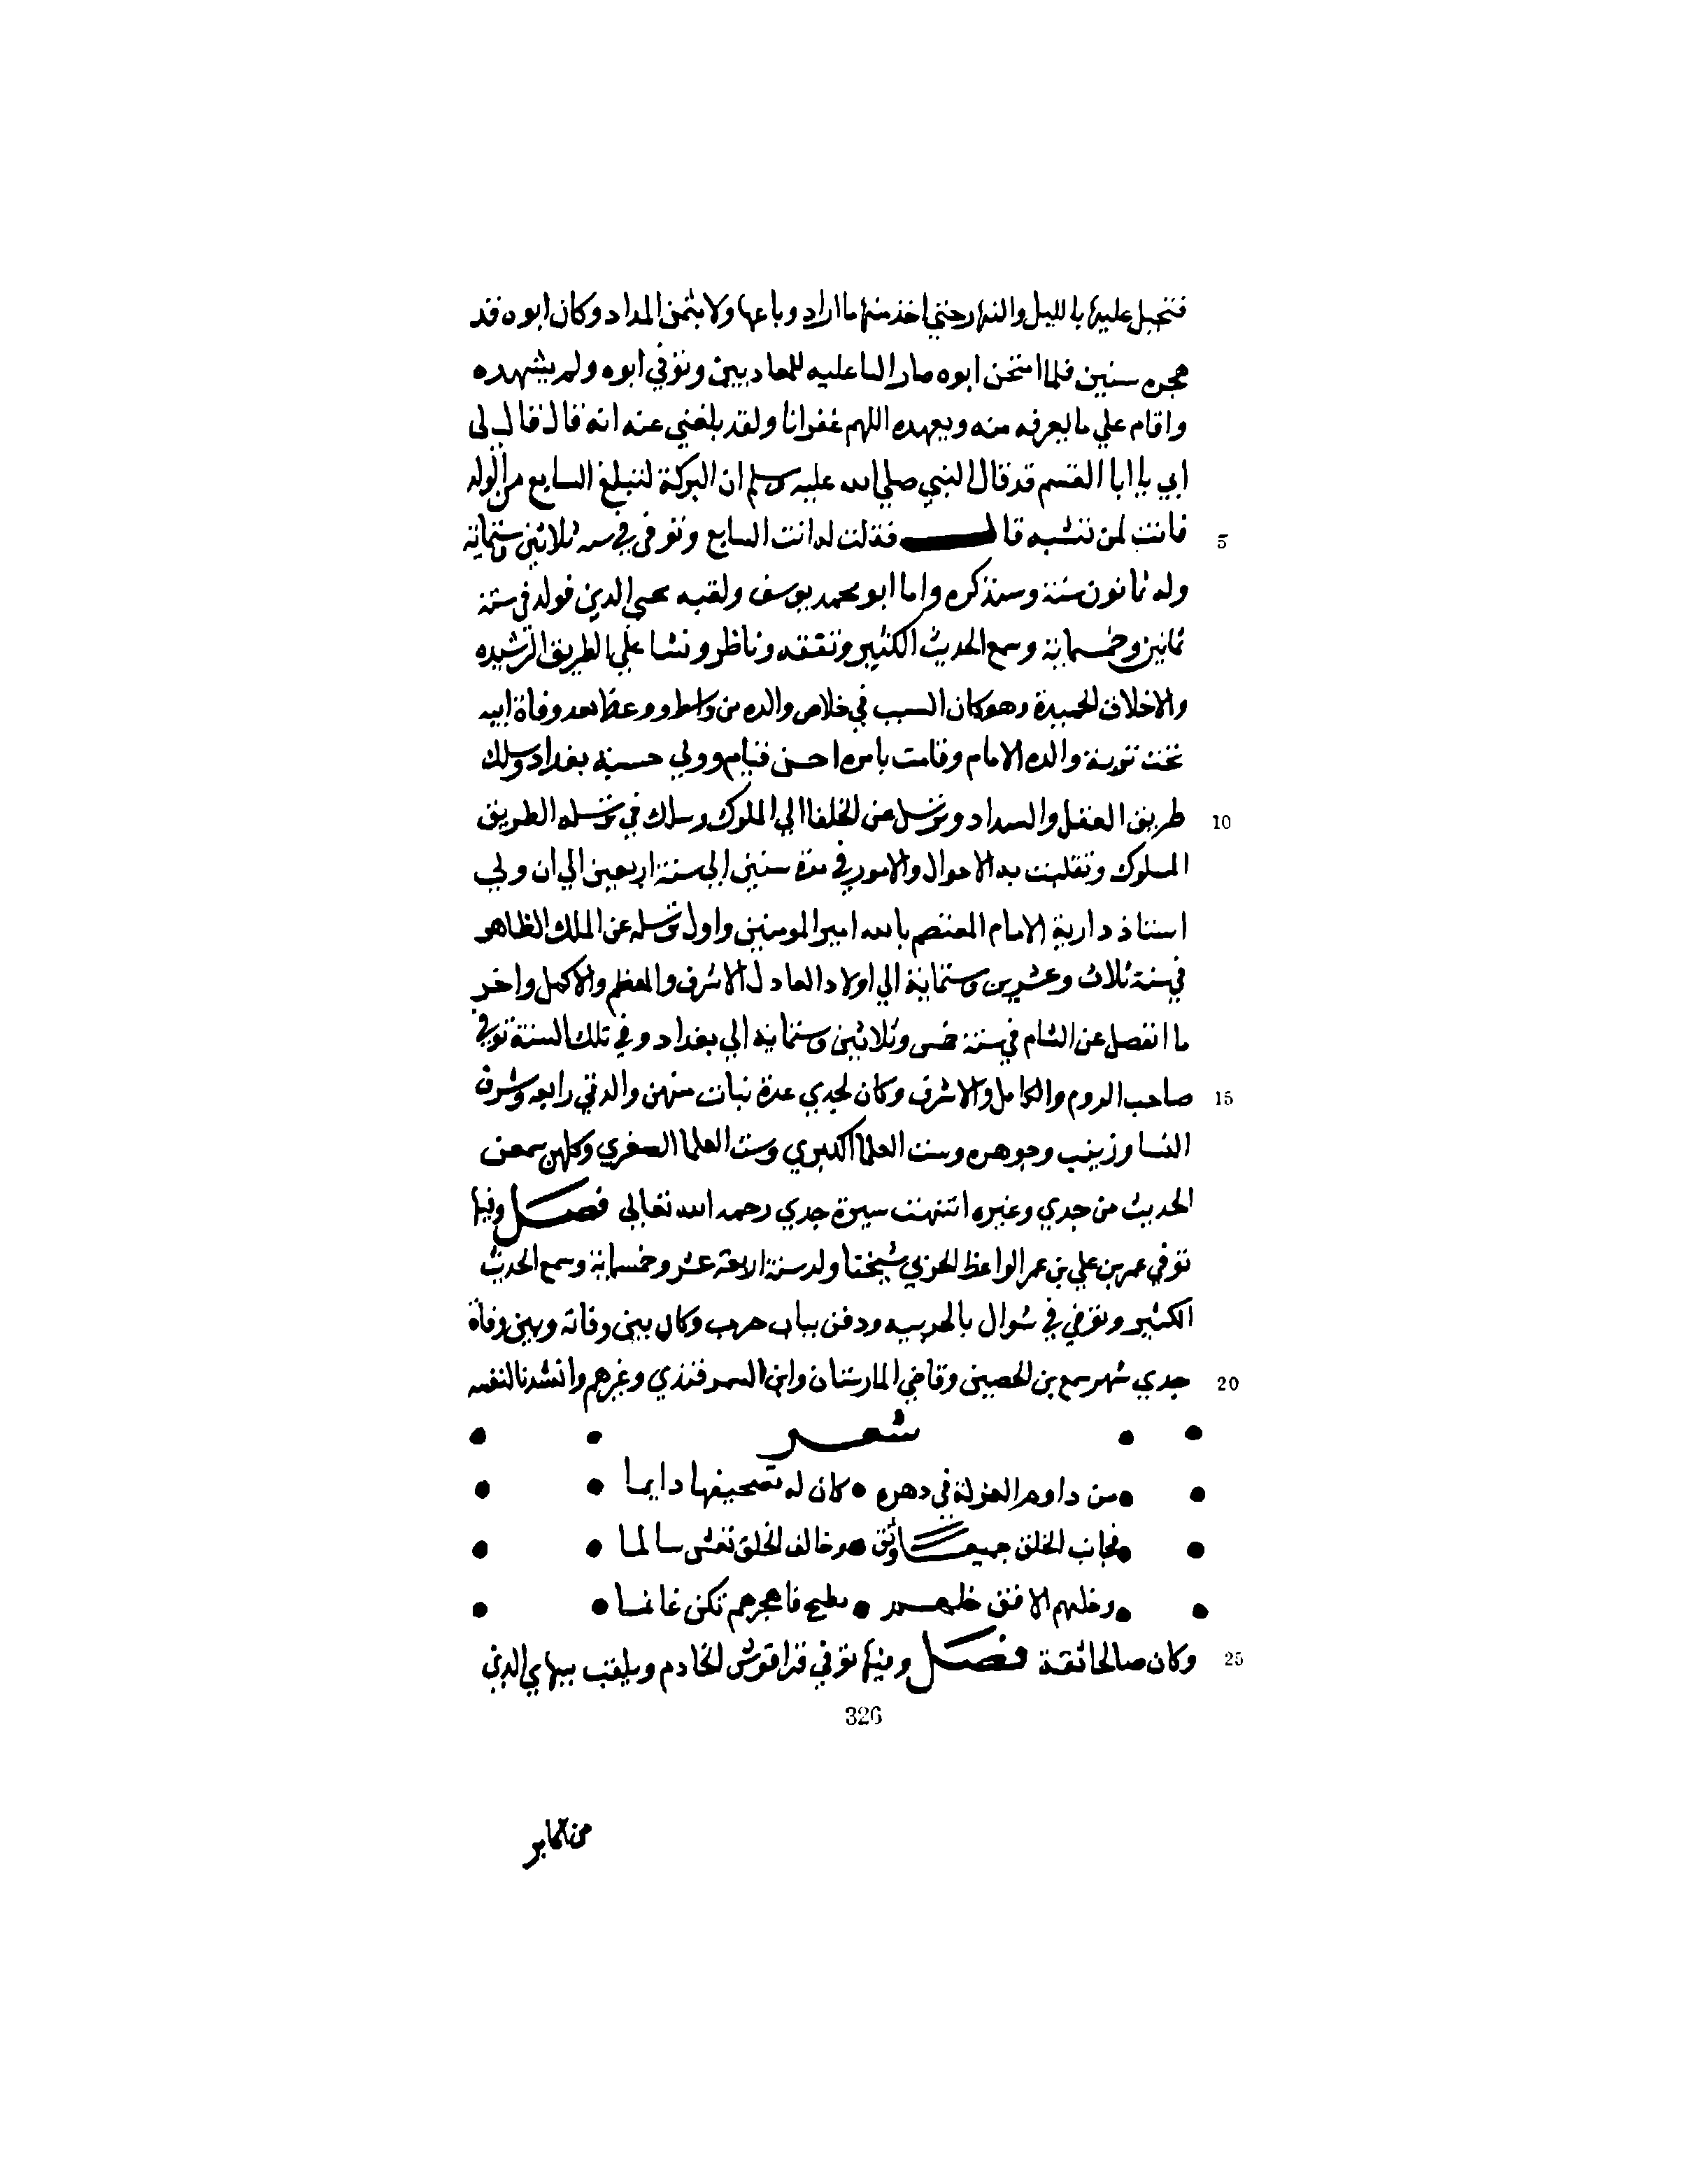 فتحيل عليها بالليل والنهار حتي اخذ منها ما اراد وباعها ولا بثمن المداد وكان ابوه قد
هجره سنين فلما امتحن ابوه صار البا عليه للمعاديين وتوفي ابوه ولم يشهده
واقام علي ما يعرفه منه ويعهده اللهم غفرانا ولقد بلغني عنه انه قال قال لى
ابي يا ابا القسم قد قال النبي صلي الله عليه وسلم ان البركة لتبلغ السابع من الولد
5 فانت لمن تتشبه قال فقلت له انت السابع وتوفى في سنه ثلاثين وستماية
وله ثمانون سنة وسنذكره واما ابو محمد يوسف ولقبه محيي الدين فولد في سنة
ثمانين وخمسماية وسمع الحديث الكثير وتفقه وناظر ونشا علي الطريق الرشيده
والاخلاق الحميدة وهو كان السبب في خلاص والده من واسط ووعظ بعد وفاة ابيه
تحت تربة والده الامام وقامت بامره احسن قيام وولي حسبة بغداد وسلك
10 طريق العقل والسداد وترسل عن الخلفا الي الملوك وسلك في ترسله الطريق
المسلوك وتقلبت به الاحوال والامور في مدة سنين الي سنة اربعين الي ان ولي
استاذ دارية الامام المعتصم بالله امير المومنين واول ترسله عن الملك الظاهر
في سنة ثلاث وعشرين وستماية الي اولاد العادل الاشرف والمعظم والاكمل واخر
ما انفصل عن الشام في سنة خمس وثلاثين وستماية الي بغداد وفي تلك السنة توفي
15 صاحب الروم والكامل والاشرف وكان لجدي عدة بنات منهن والدتي رابعه وشرف
النسا وزينب وجوهره وست العلما الكبري وست العلما الصغري وكلهن سمعن
الحديث من جدي وغيره انتهت سيرة جدي رحمه الله تعالي فصل وفيها
توفي عمر بن علي بن عمر الواعظ الحربي شيخنا ولد سنة اربعة عشر وخمسماية وسمع الحديث
الكثير وتوفي في شوال بالحربيه ودفن بباب حرب وكان بين وفاته وبين وفاة
20 جدي شهر سمع بن الحصين وقاضي المارستان وابن السمرقندي وغيرهم وانشدنا لنفسه
شعر
من داوم العزلة في دهره كان له تصحيفها دايما
فجانب الخلق جميعا وثق وخالف الخلق تعش سالما
وخلهم الافق ظهر مطيح فاهجرهم تكن غانما
25 وكان صالحا ثقة فصل وفيها توفي قراقوش الخادم ويلقب ببهاي الدين
326
من اكابر